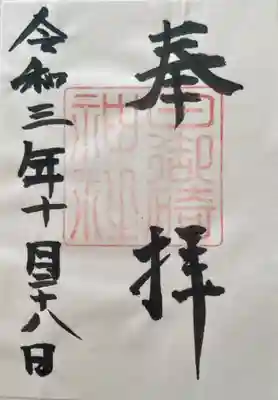 奉拝
御
神社
令和三年十月二十八日